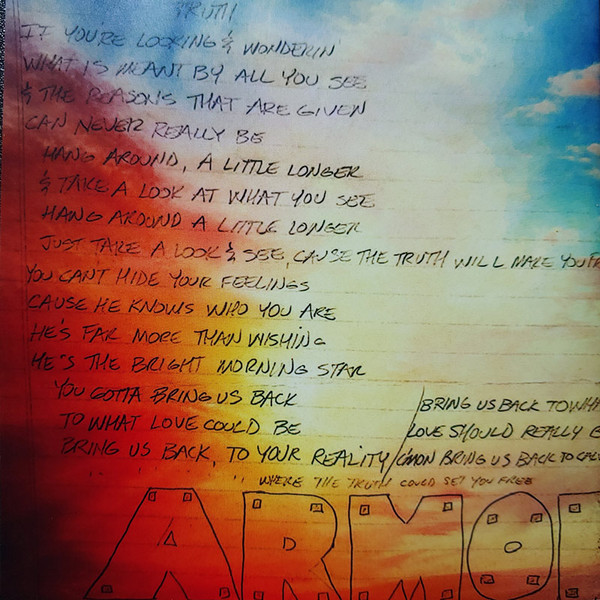 TRUTH
IF YOU'RE LOOKING & WONDERIN'
WHAT IS MEANT BY ALL YOU SEE
& THE REASON'S THAT ARE GIVEN
CAN NEVER REALLY BE
HANG AROUND, A LITTLE LONGER
& TAKE A LOOK AT WHAT YOU SEE
HANG AROUND A LITTLE LONGER
JUST TAKE A LOOK & SEE, CAUSE THE TRUTH WILL MAKE YOU FR
YOU CAN'T HIDE YOUR FEELINGS
CAUSE HE KNOWS WHO YOU ARE
HE'S FAR MORE THAN WISHING
HE'S THE BRIGHT MORNING STAR
YOU GOTTA BRING US BACK
TO WHAT LOVE COULD BE
BRING US BACK, TO YOUR REALITY/
BRING US BACK TO WHA
LOVE SHOULD REALLY B
C'MON BRING US BACK TO CAL
" WHERE THE TRUTH COULD SET YOU FREE
ARMO